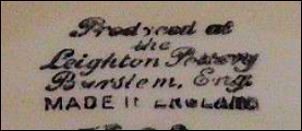 Produced at
the
Leighton Pottery
Burslem, Eng.
MADE IN ENGLAND